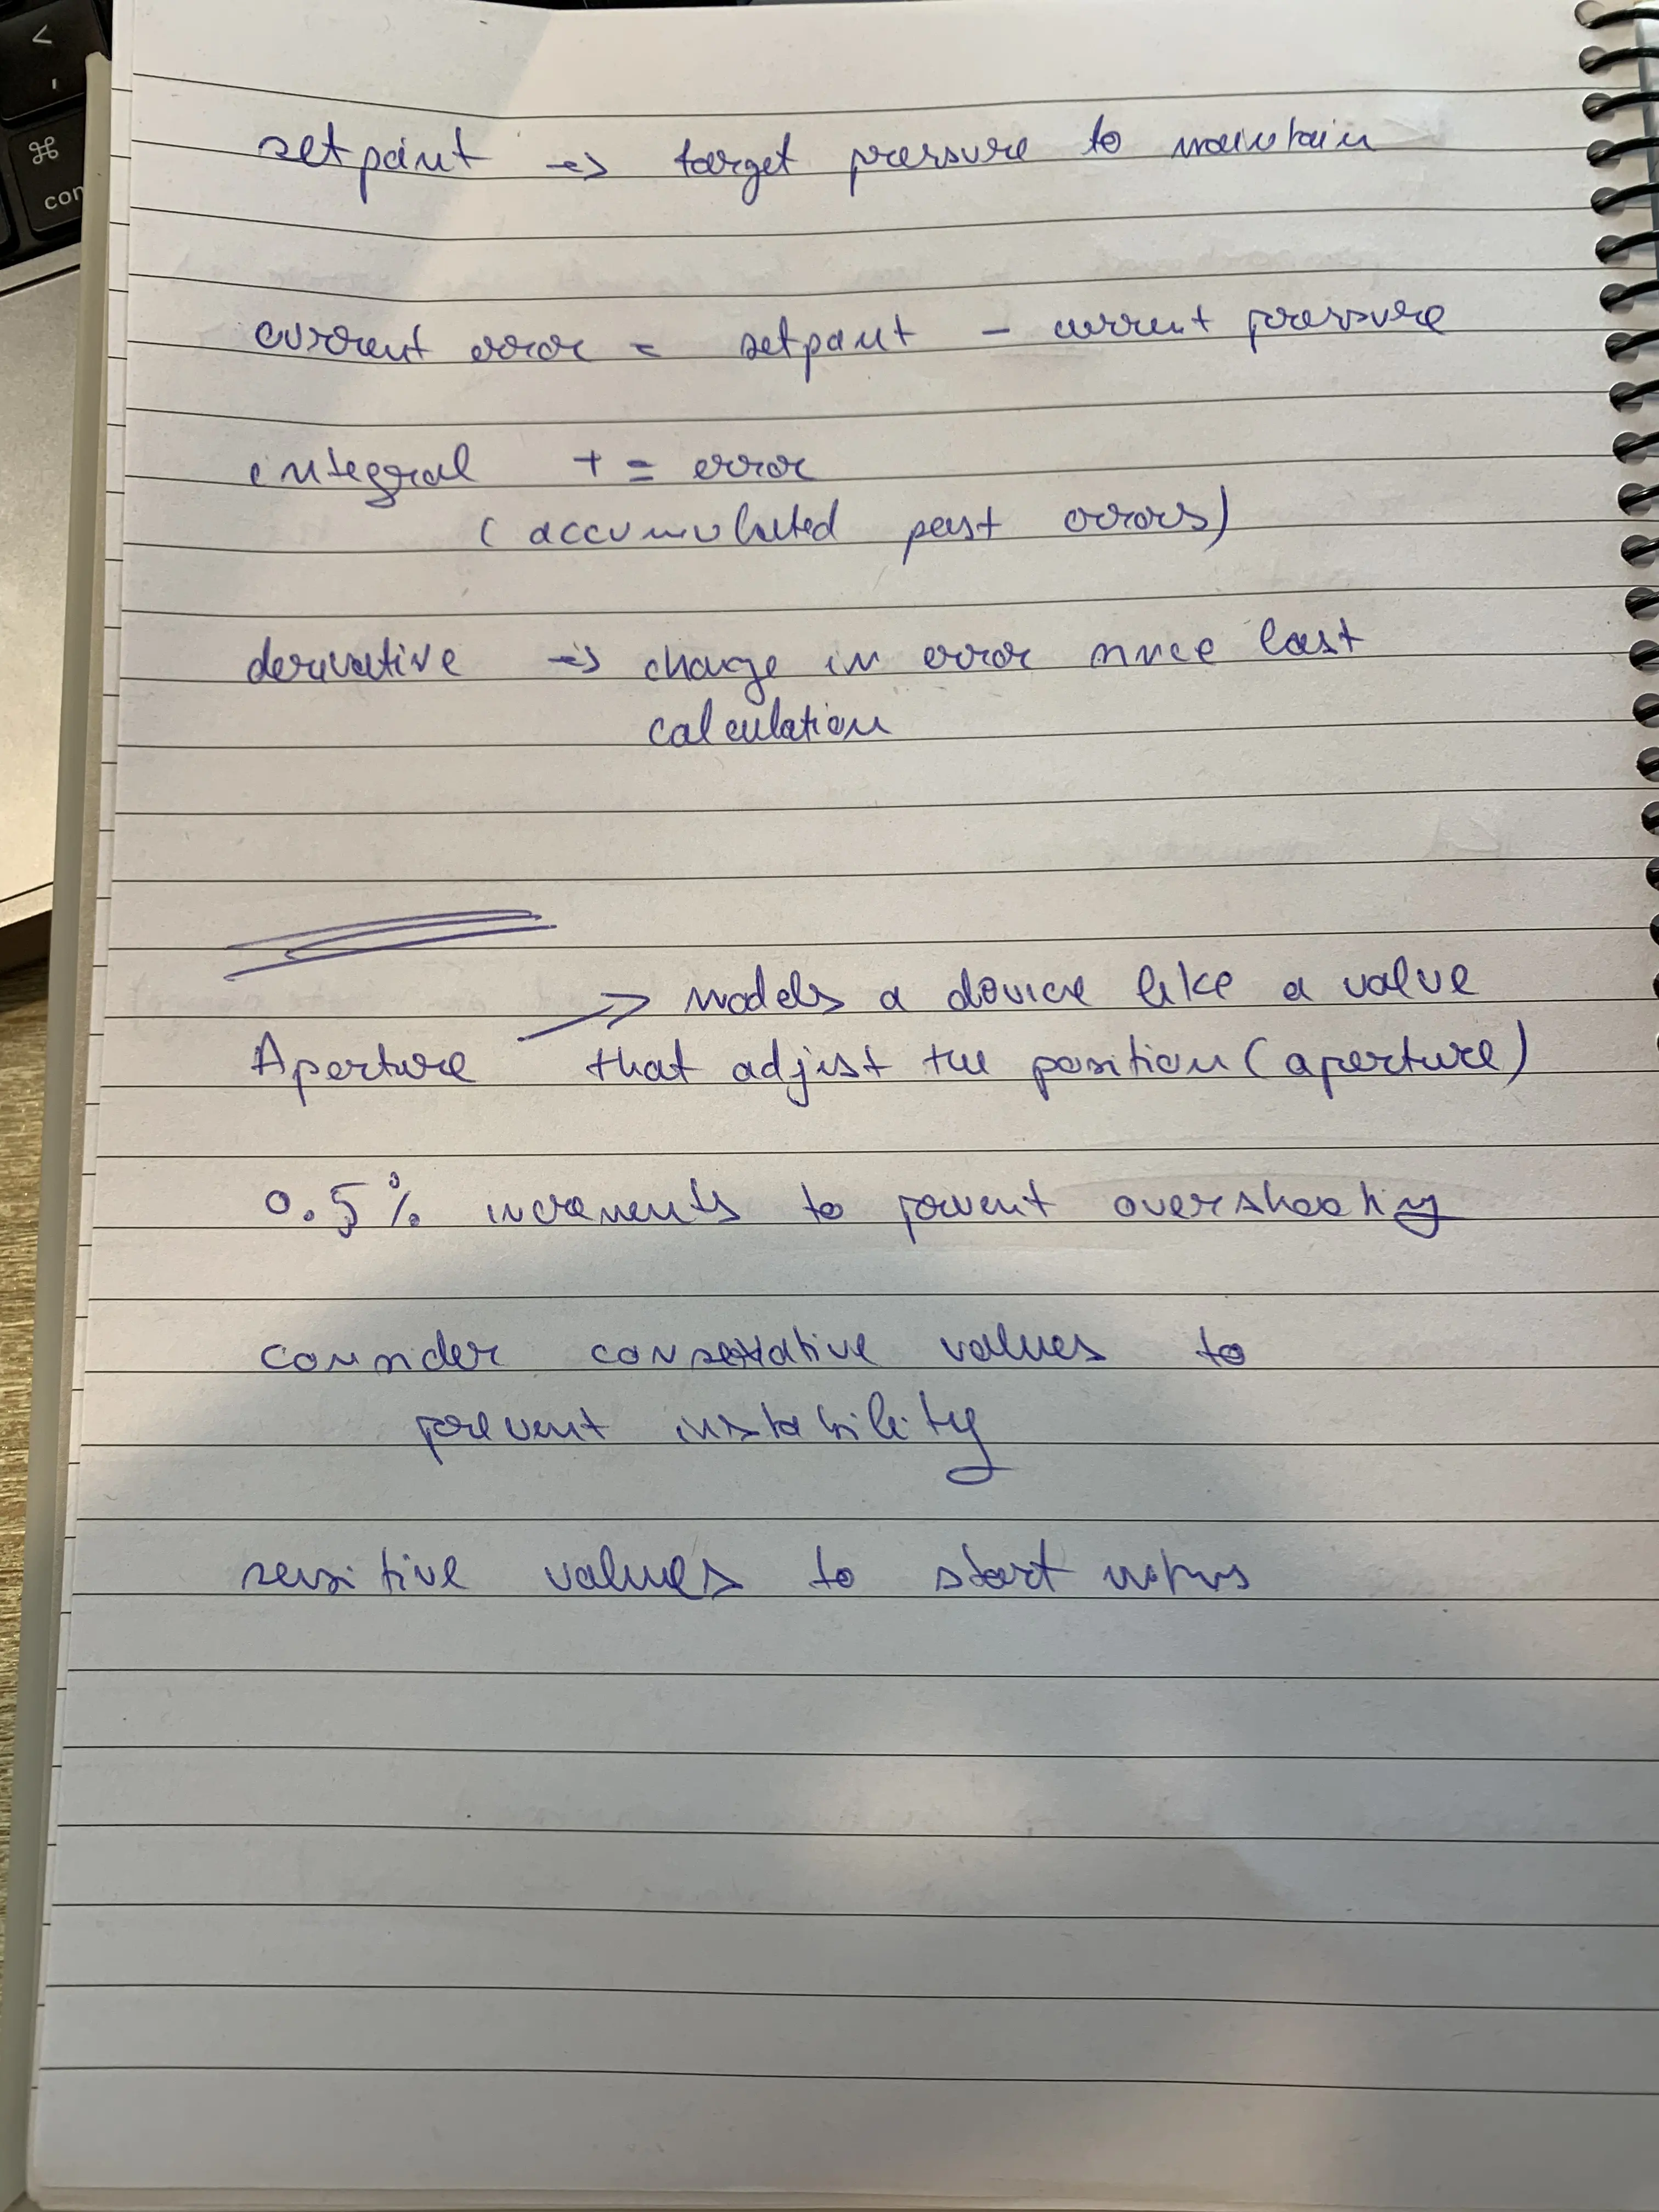 <
,
⌘
con
setpoint => target pressure to maintain
current error = setpoint - current pressure
integral += error
(accumulated past errors)
derivative => change in error since last
calculation
-> models a device like a value
Aperture that adjist the position (aperture)
0.5% increments to prevent overshooting
consider conservative values to
prevent instability
sensitive values to start